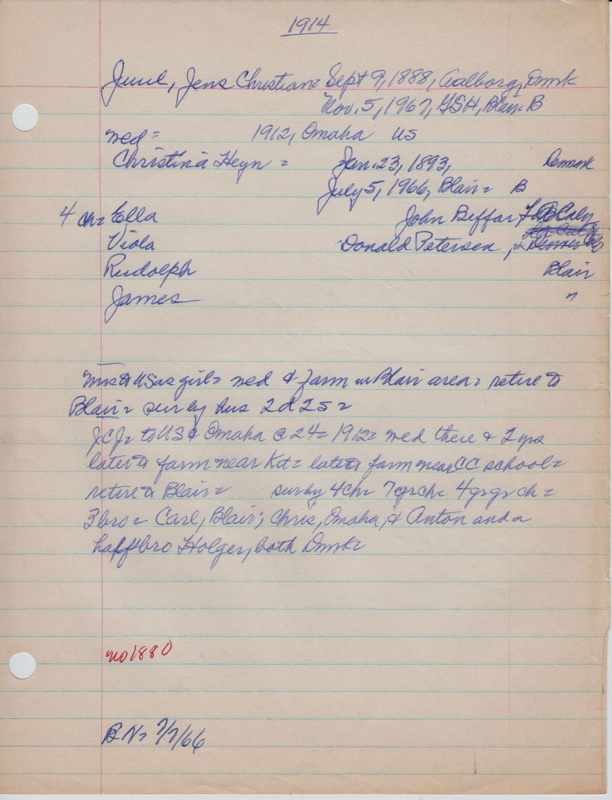 1914
Juul, Jens Christian = Sept 9, 1888, Aalborg, Dmrk
Nov. 5, 1967, GSH, Blair B
wed = 1912, Omaha US
Christina Heyn = Jan. 23, 1893, Denmark
July 5, 1966, Blair = B
4 ch = Ella John Beffar, LA Calif
Viola Donald Petersen, Denver
Rudolph Blair
James "
Mrs to US as girl = wed & farm in Blair area = retire to
Blair = sur by hus 2d 2s =
JCJ = to US & Omaha @ 24 = 1912 = wed there & 2 yrs
later to farm near = later to farm near CC school =
retire to Blair = sur by 4 ch = 7 grch = 4 grgrch =
3 bro = Carl, Blair; Chris, Omaha, & Anton and a
half bro Holger, both Dmrk =
no 1880
BN = 7/7/66